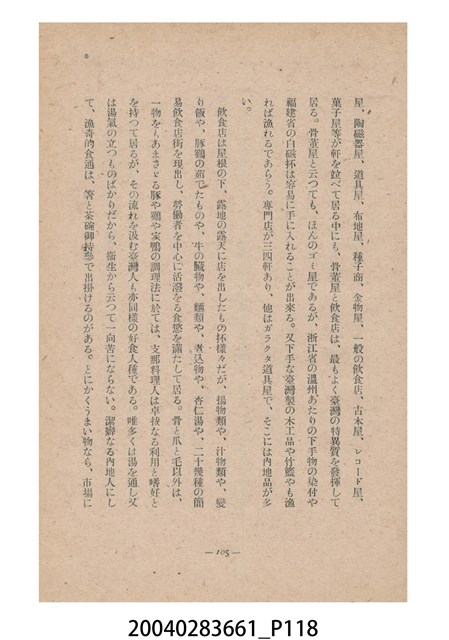 屋、陶磁器屋、道具屋、布地屋、種子商、金物屋、一般の飲食店、古木屋、レコード屋、
菓子屋等が軒を竝べて居る中にも、骨董屋と飲食店は、最もよく臺灣の特異質を發揮して
居る。骨董屋と云つても、ほんのゴミ屋であるが、浙江省の溫州あたりの下手物の染付や
福建省の白磁杯は容易に手に入れることが出來る。又下手な臺灣製の木工品や竹籃やも漁
れば漁れるであらう。專門店が三四軒あり、他はガラクタ道具屋で、そこには內地品が多
い。
飲食店は屋根の下、露地の露天に店を出したもの抔樣々だが、揚物類や、汁物類や、變
り飯や、豚鷄の茹でたものや、牛の臟物や、麵類や、煮込物や、杏仁湯や、二十幾種の簡
易飲食店街を現出し、勞働者を中心に活潑をる食慾を滿たして居る。骨と爪と毛以外は、
一物をもあまさゞる豚や鷄や家鴨の調理法に於ては、支那料理人は卓拔なる利用と嗜好と
を持つて居るが、その流れを汲む臺灣人も亦同樣の好食人種である。唯多くは湯を通し又
は湯氣の立つものばかりだから、衞生から云つて一向苦にならない。潔癖なる內地人にし
て、漁奇的食通は、箸と茶碗御持參で出掛けるのがある。とにかくうまい物なら、市場に
— 105 —
20040283661_P118